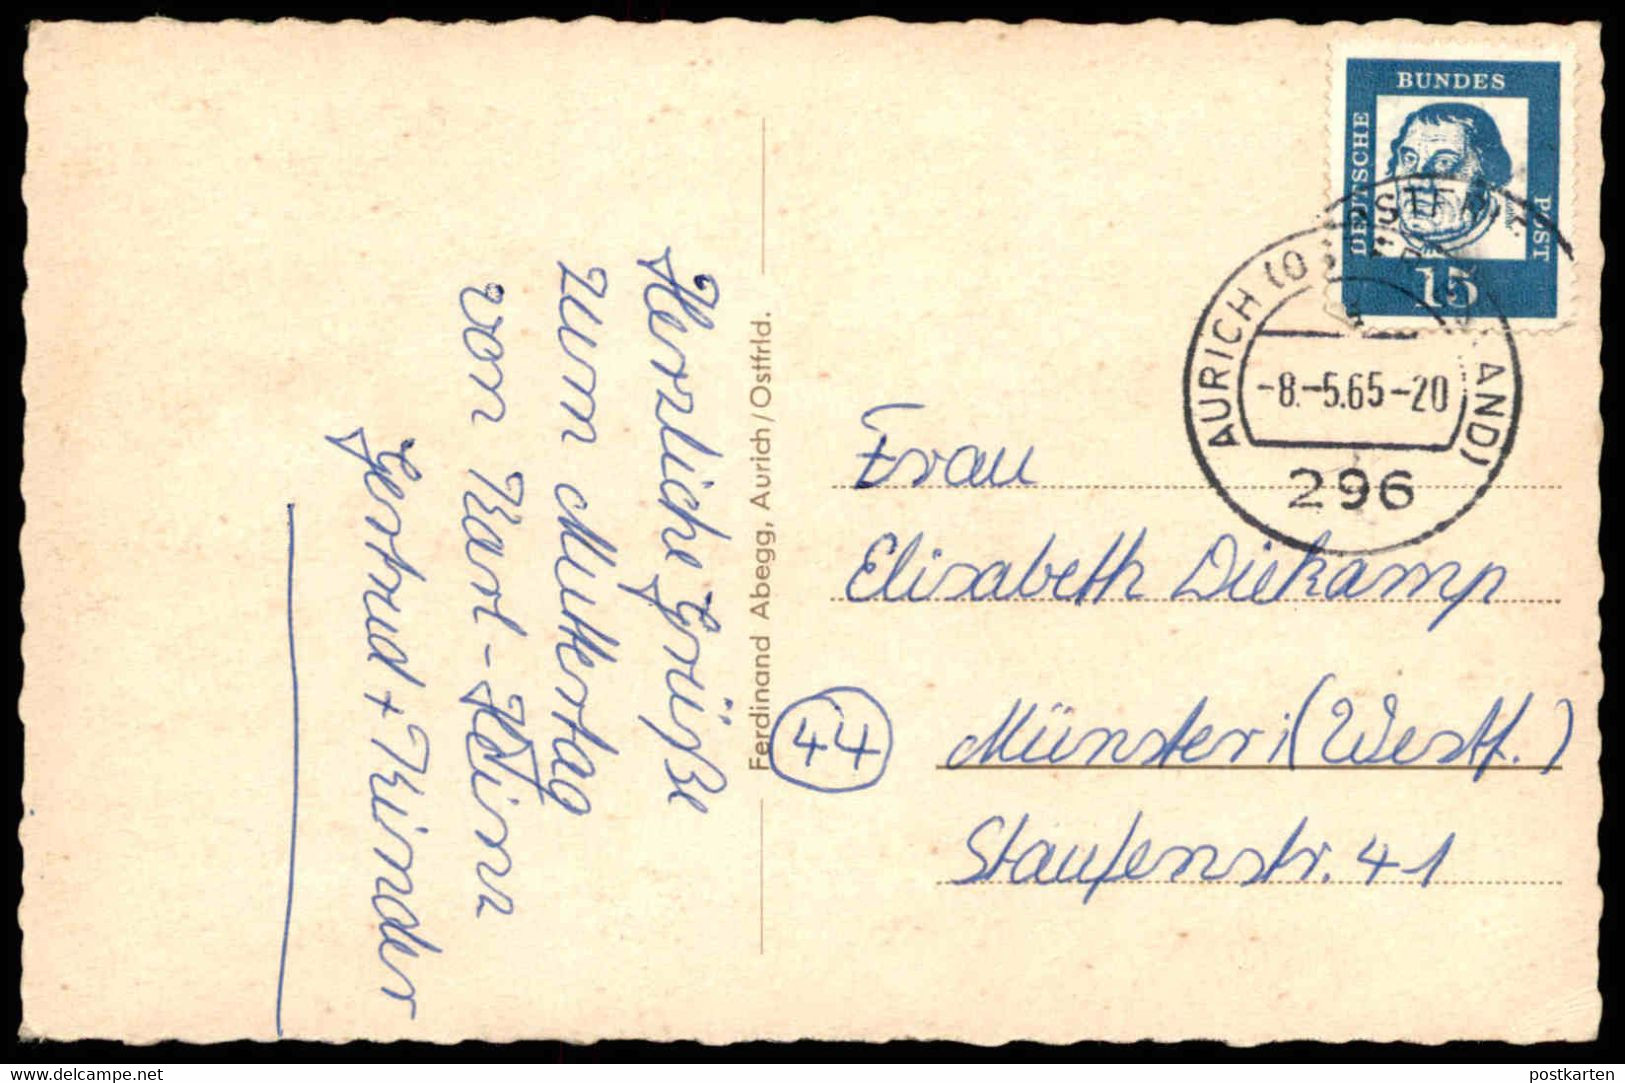 Herzliche Grüße
zum Muttertag
von Karl-Heinz
Gertrud + Kinder
Ferdinand Abegg, Aurich/Ostfrld.
DEUTSCHE
BUNDES
POST
15
AURICH
-8.-5.65-20
296
Frau
Elisabeth Diekamp
44
Münster i (Westf.)
Staufenstr. 41
www.delcampe.net
postkarten